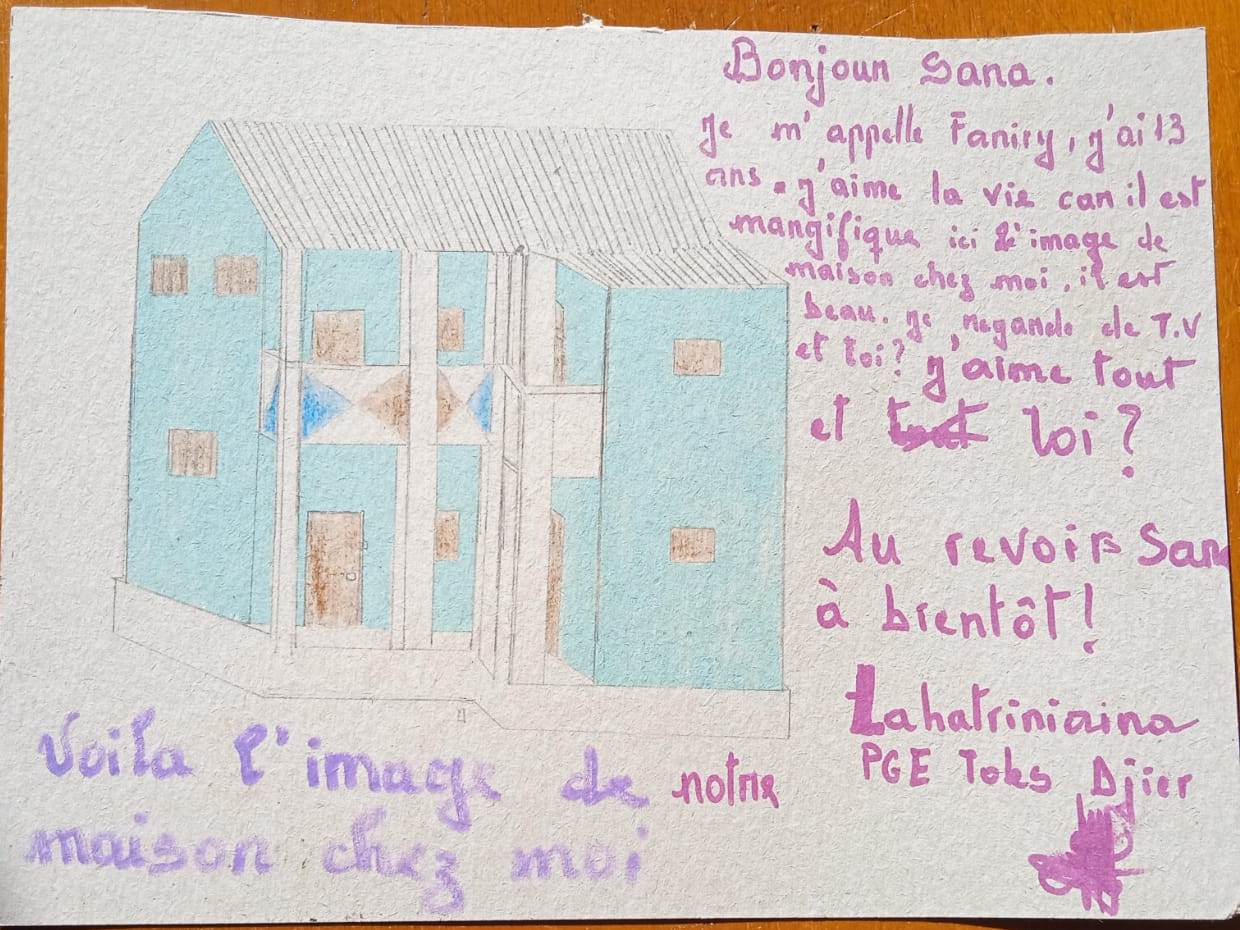 Bonjour Sana.
Je m'appelle Faniry, j'ai 13
ans. j'aime la vie car il est
mangifique ici l'image de
maison chez moi, il est
beau. je regande de T.V
et toi? j'aime tout
et toi?
Au revoir Sana
à bientôt!
Lahatriniaina
PGE Toks Djier
Voila l'image de notre
maison chez moi